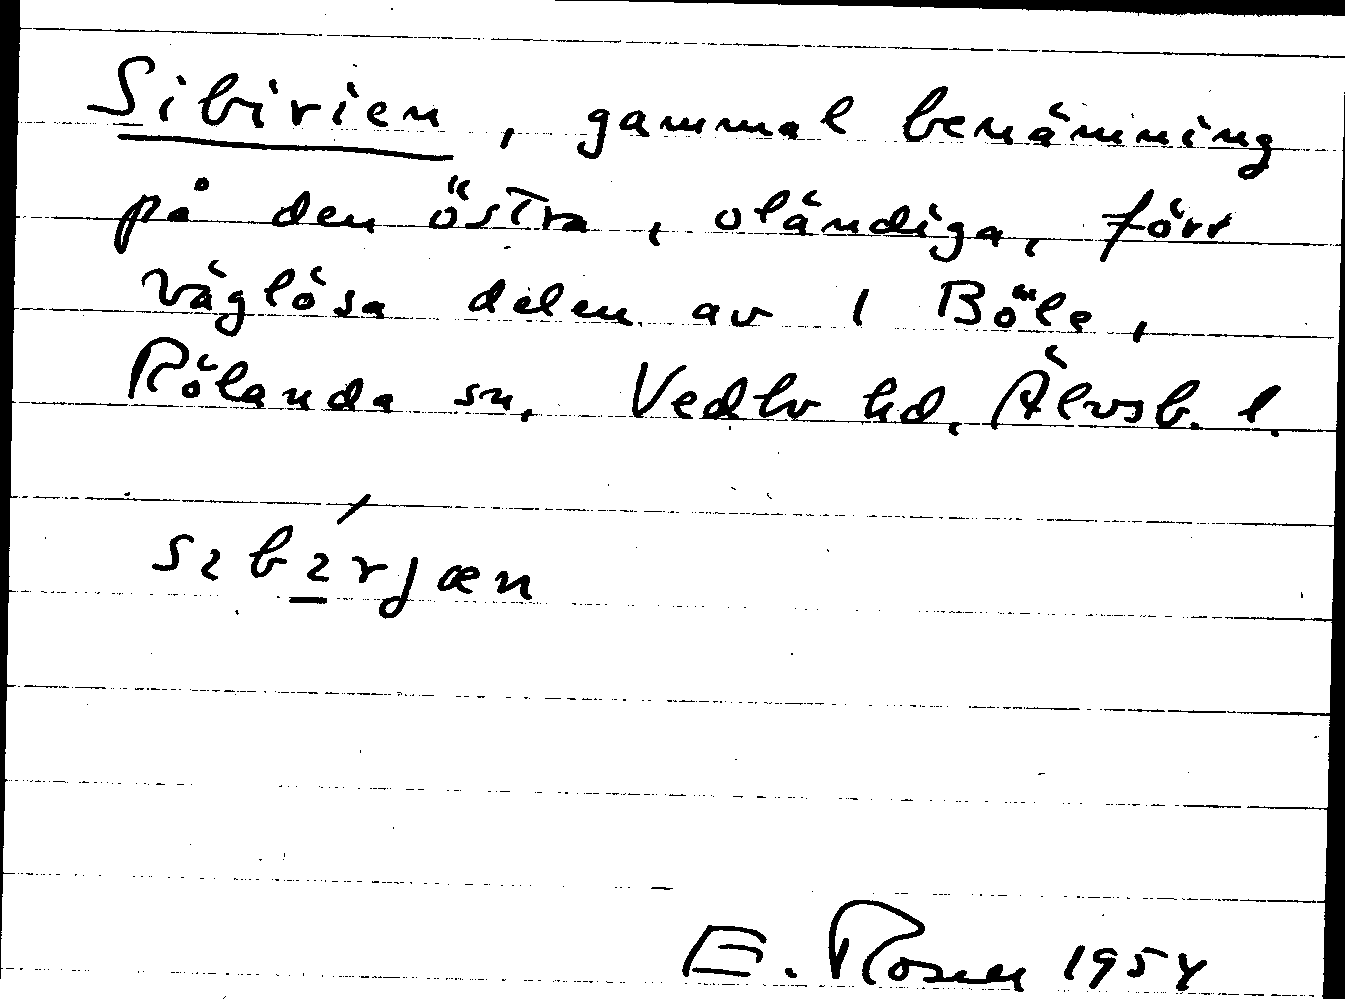 Sibirien, gammal benämning
på den östra, oländiga, förr
väglösa delen av 1 Böle,
Rölanda sn, Vedbo hd, Älvsb. l.
sɩbɩ́rjæn
E. Rosell 1954